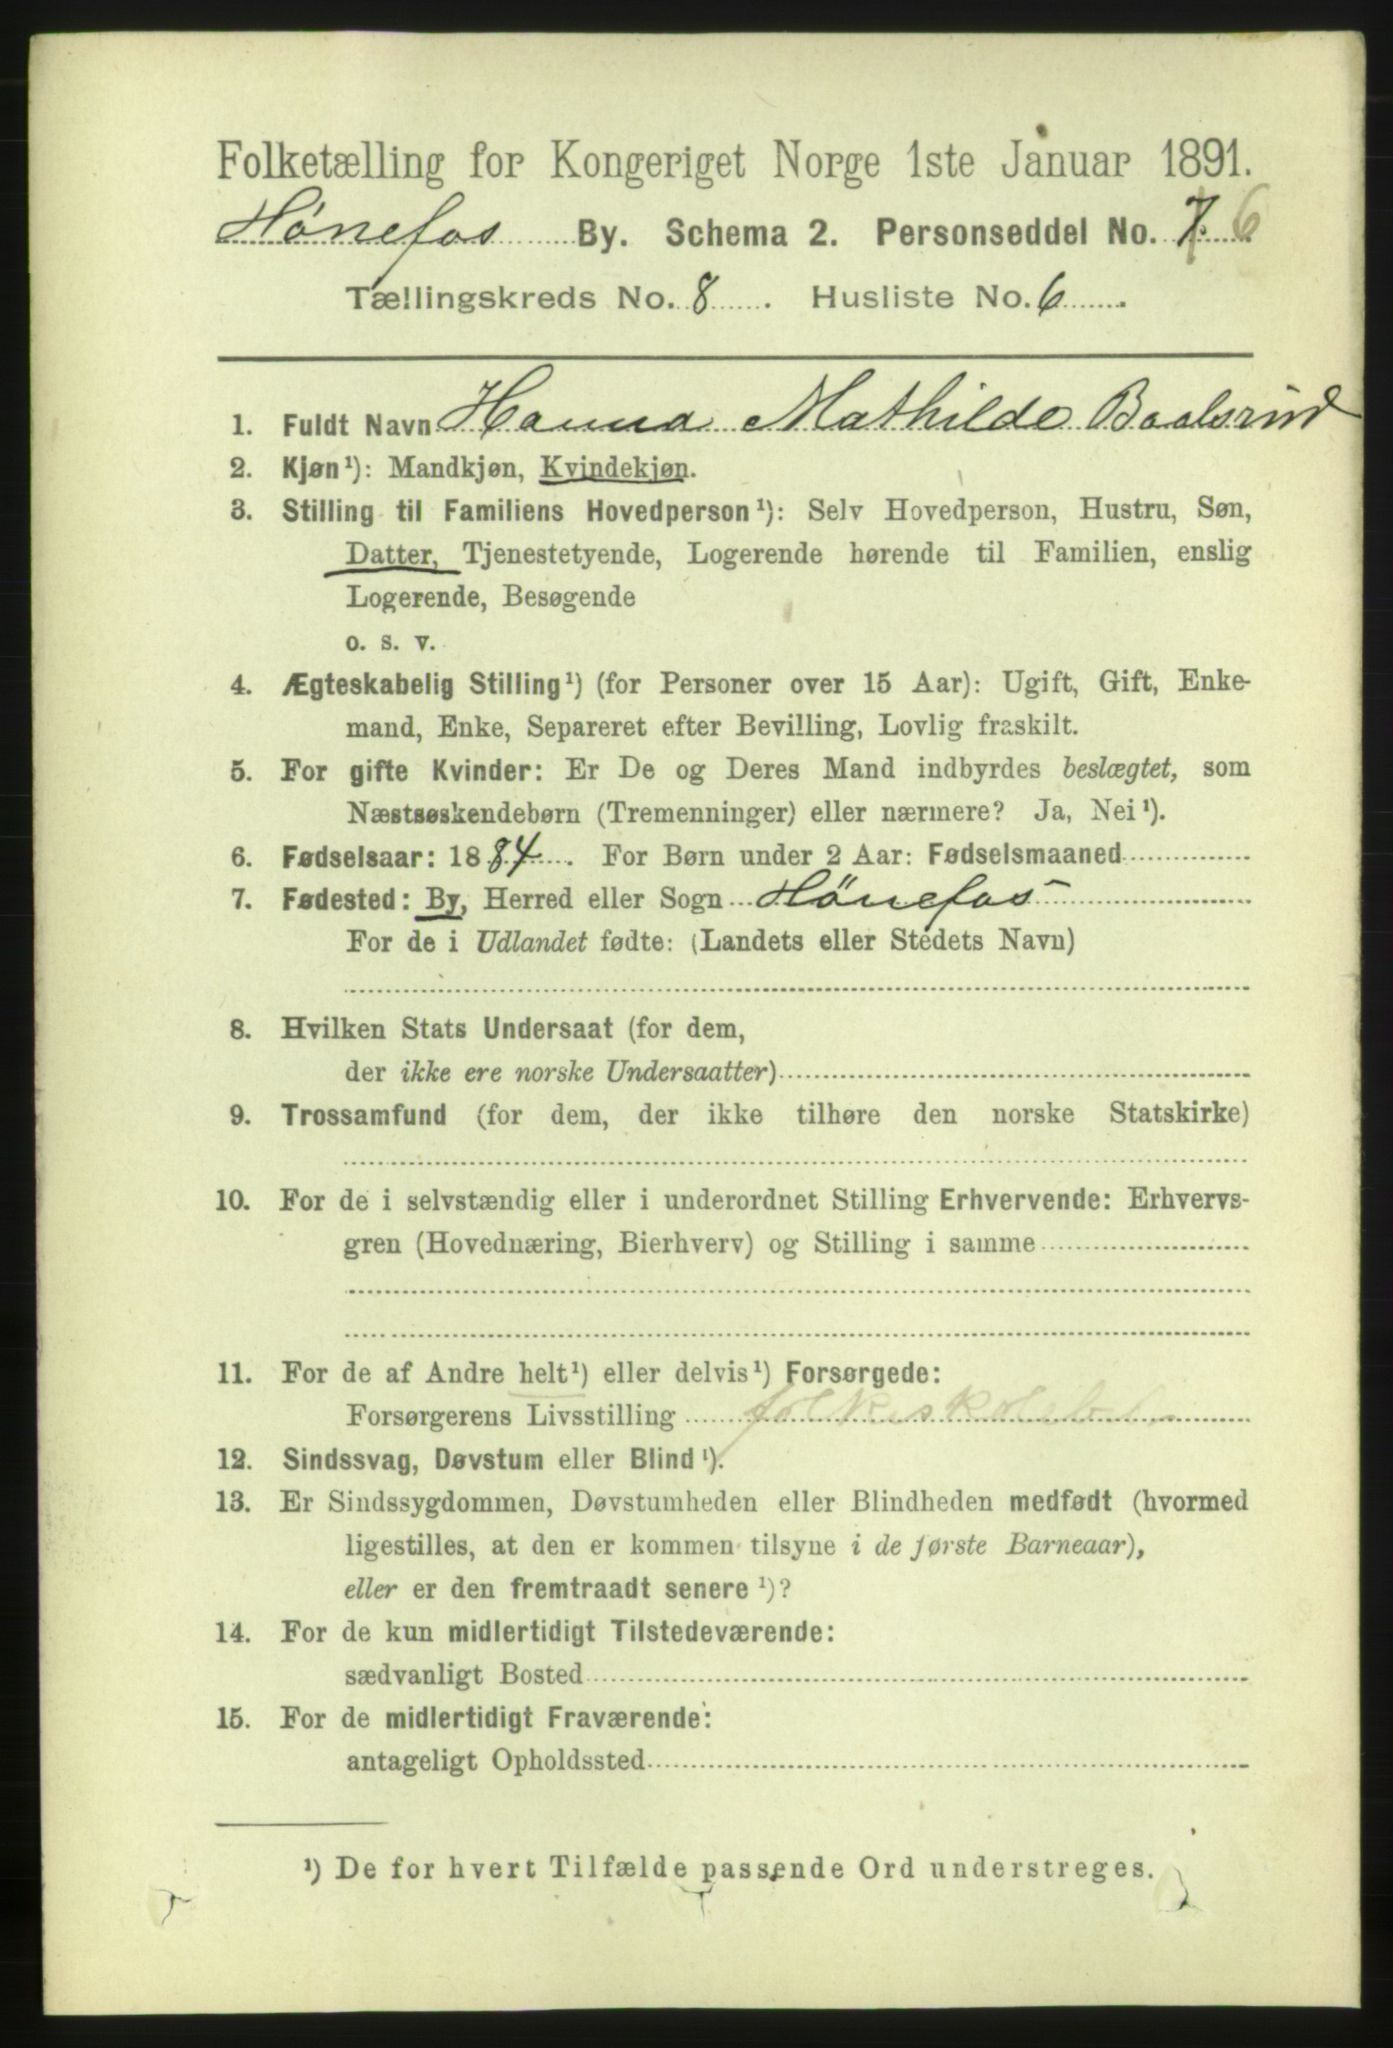 Folketælling for Kongeriget Norge 1ste Januar 1891.
Hønefos By. Schema 2. Personseddel No. 7 6
Tællingskreds No. 8 . Husliste No. 6 .
1. Fuldt Navn Hanna Mathilde Baalsrud
2. Kjøn¹): Mandkjøn, Kvindekjøn.
3. Stilling til Familiens Hovedperson¹): Selv Hovedperson, Hustru, Søn,
Datter, Tjenestetyende, Logerende hørende til Familien, enslig
Logerende, Besøgende
o. s. v.
4. Ægteskabelig Stilling¹) (for Personer over 15 Aar): Ugift, Gift, Enke-
mand, Enke, Separeret efter Bevilling, Lovlig fraskilt.
5. For gifte Kvinder: Er De og Deres Mand indbyrdes beslægtet, som
Næstsøskendebørn (Tremenninger) eller nærmere? Ja, Nei¹).
6. Fødselsaar: 1884 . For Børn under 2 Aar: Fødselsmaaned
7. Fødested: By, Herred eller Sogn Hönefos
For de i Udlandet fødte: (Landets eller Stedets Navn)
8. Hvilken Stats Undersaat (for dem,
der ikke ere norske Undersaatter)
9. Trossamfund (for dem, der ikke tilhøre den norske Statskirke)
10. For de i selvstændig eller i underordnet Stilling Erhvervende: Erhvervs-
gren (Hovednæring, Bierhverv) og Stilling i samme
11. For de af Andre helt¹) eller delvis¹) Forsørgede:
Forsørgerens Livsstilling
12. Sindssvag, Døvstum eller Blind¹).
13. Er Sindssygdommen, Døvstumheden eller Blindheden medfødt (hvormed
ligestilles, at den er kommen tilsyne i de første Barneaar),
eller er den fremtraadt senere¹)?
14. For de kun midlertidigt Tilstedeværende:
sædvanligt Bosted
15. For de midlertidigt Fraværende:
antageligt Opholdssted
¹) De for hvert Tilfælde passende Ord understreges.